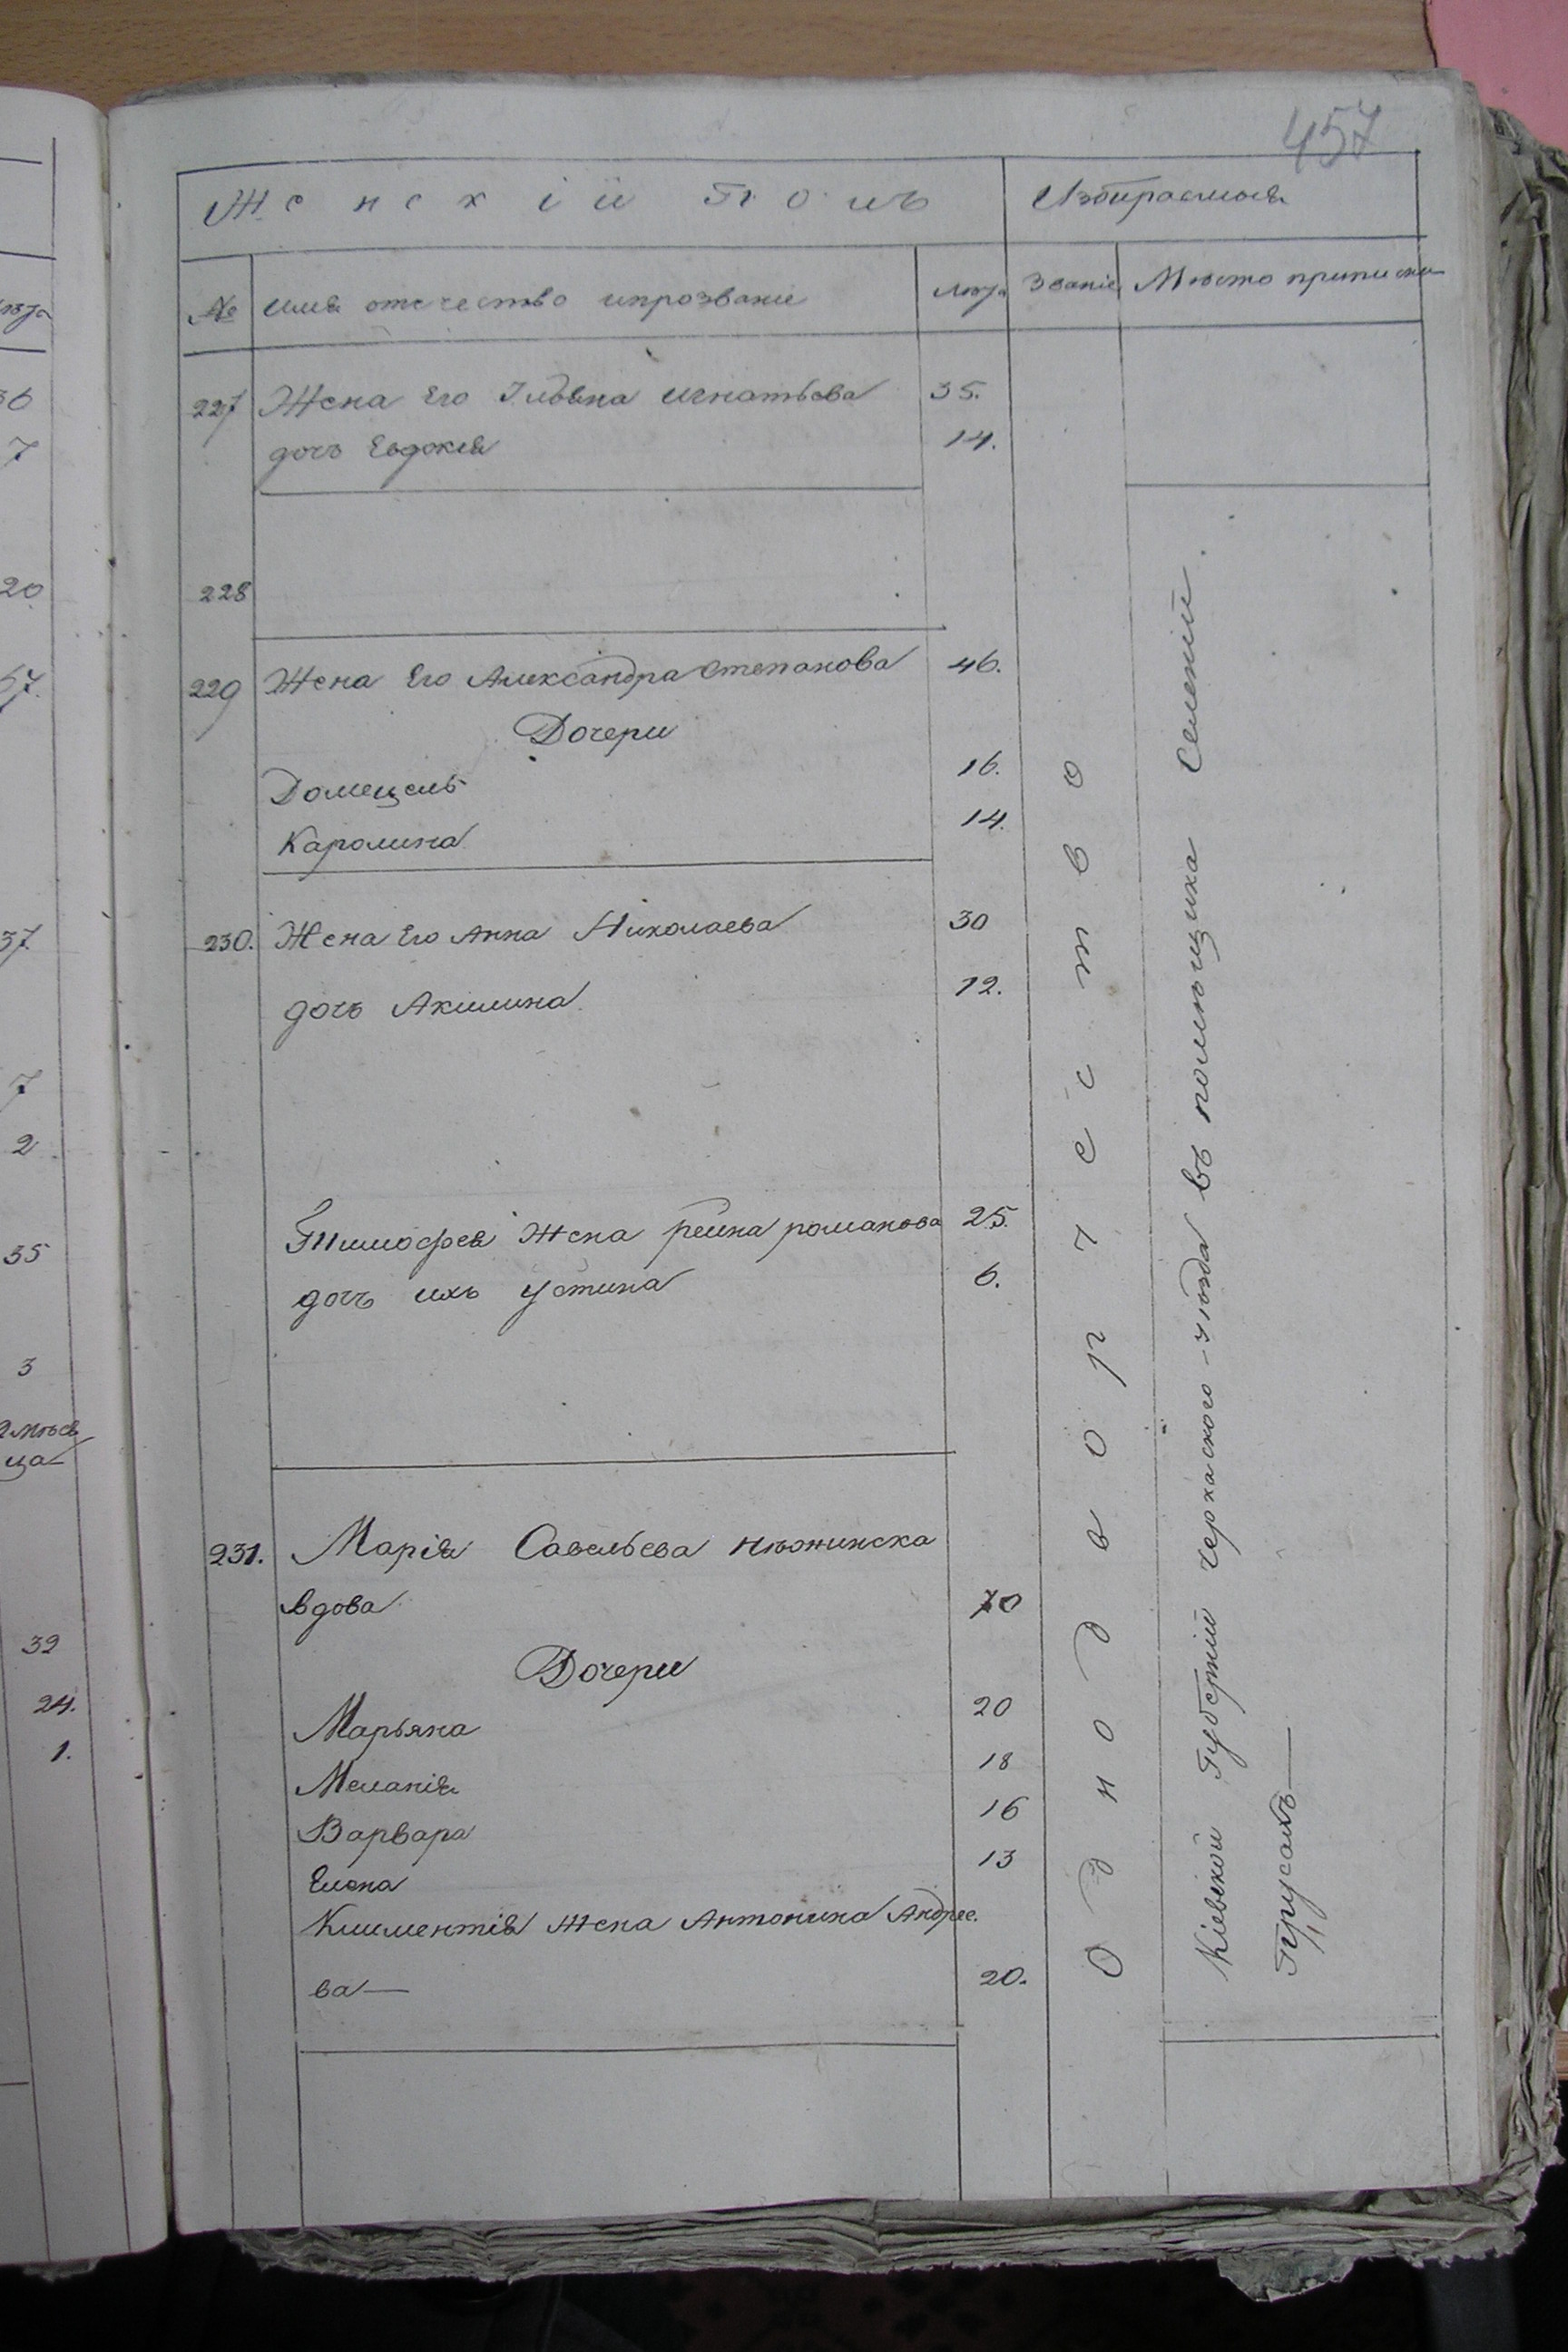 457
Женскій Полъ
Избираемыя
№
имя отечество ипрозвание
Лѣта
Званіе
Мѣсто приписки
227 Жена Его Ульяна Игнатьева 35.
дочь Евдокия 14.
228
229 Жена Его Александра Степанова 46.
Дочери
Домецель 16.
Каролина 14.
230. Жена Его Анна Николаева 30
дочь Акилина 12.
Тимофея Жена романова 25.
дочь ихъ Устина 6.
231. Марія Савельева Нѣжинска
Вдова 70
Дочери
Марьяна 20
Меланія 18
Варвара 16
Елена 13
Климентія Жена Антонина Андрее.
ва— 20.
Однодворчество
Кіевской Губерніи Черкаского уѣзда въ помѣщика Селеній
Прусахъ
36
7
20
57.
37.
7
2
35
3
ца
39
24.
1.